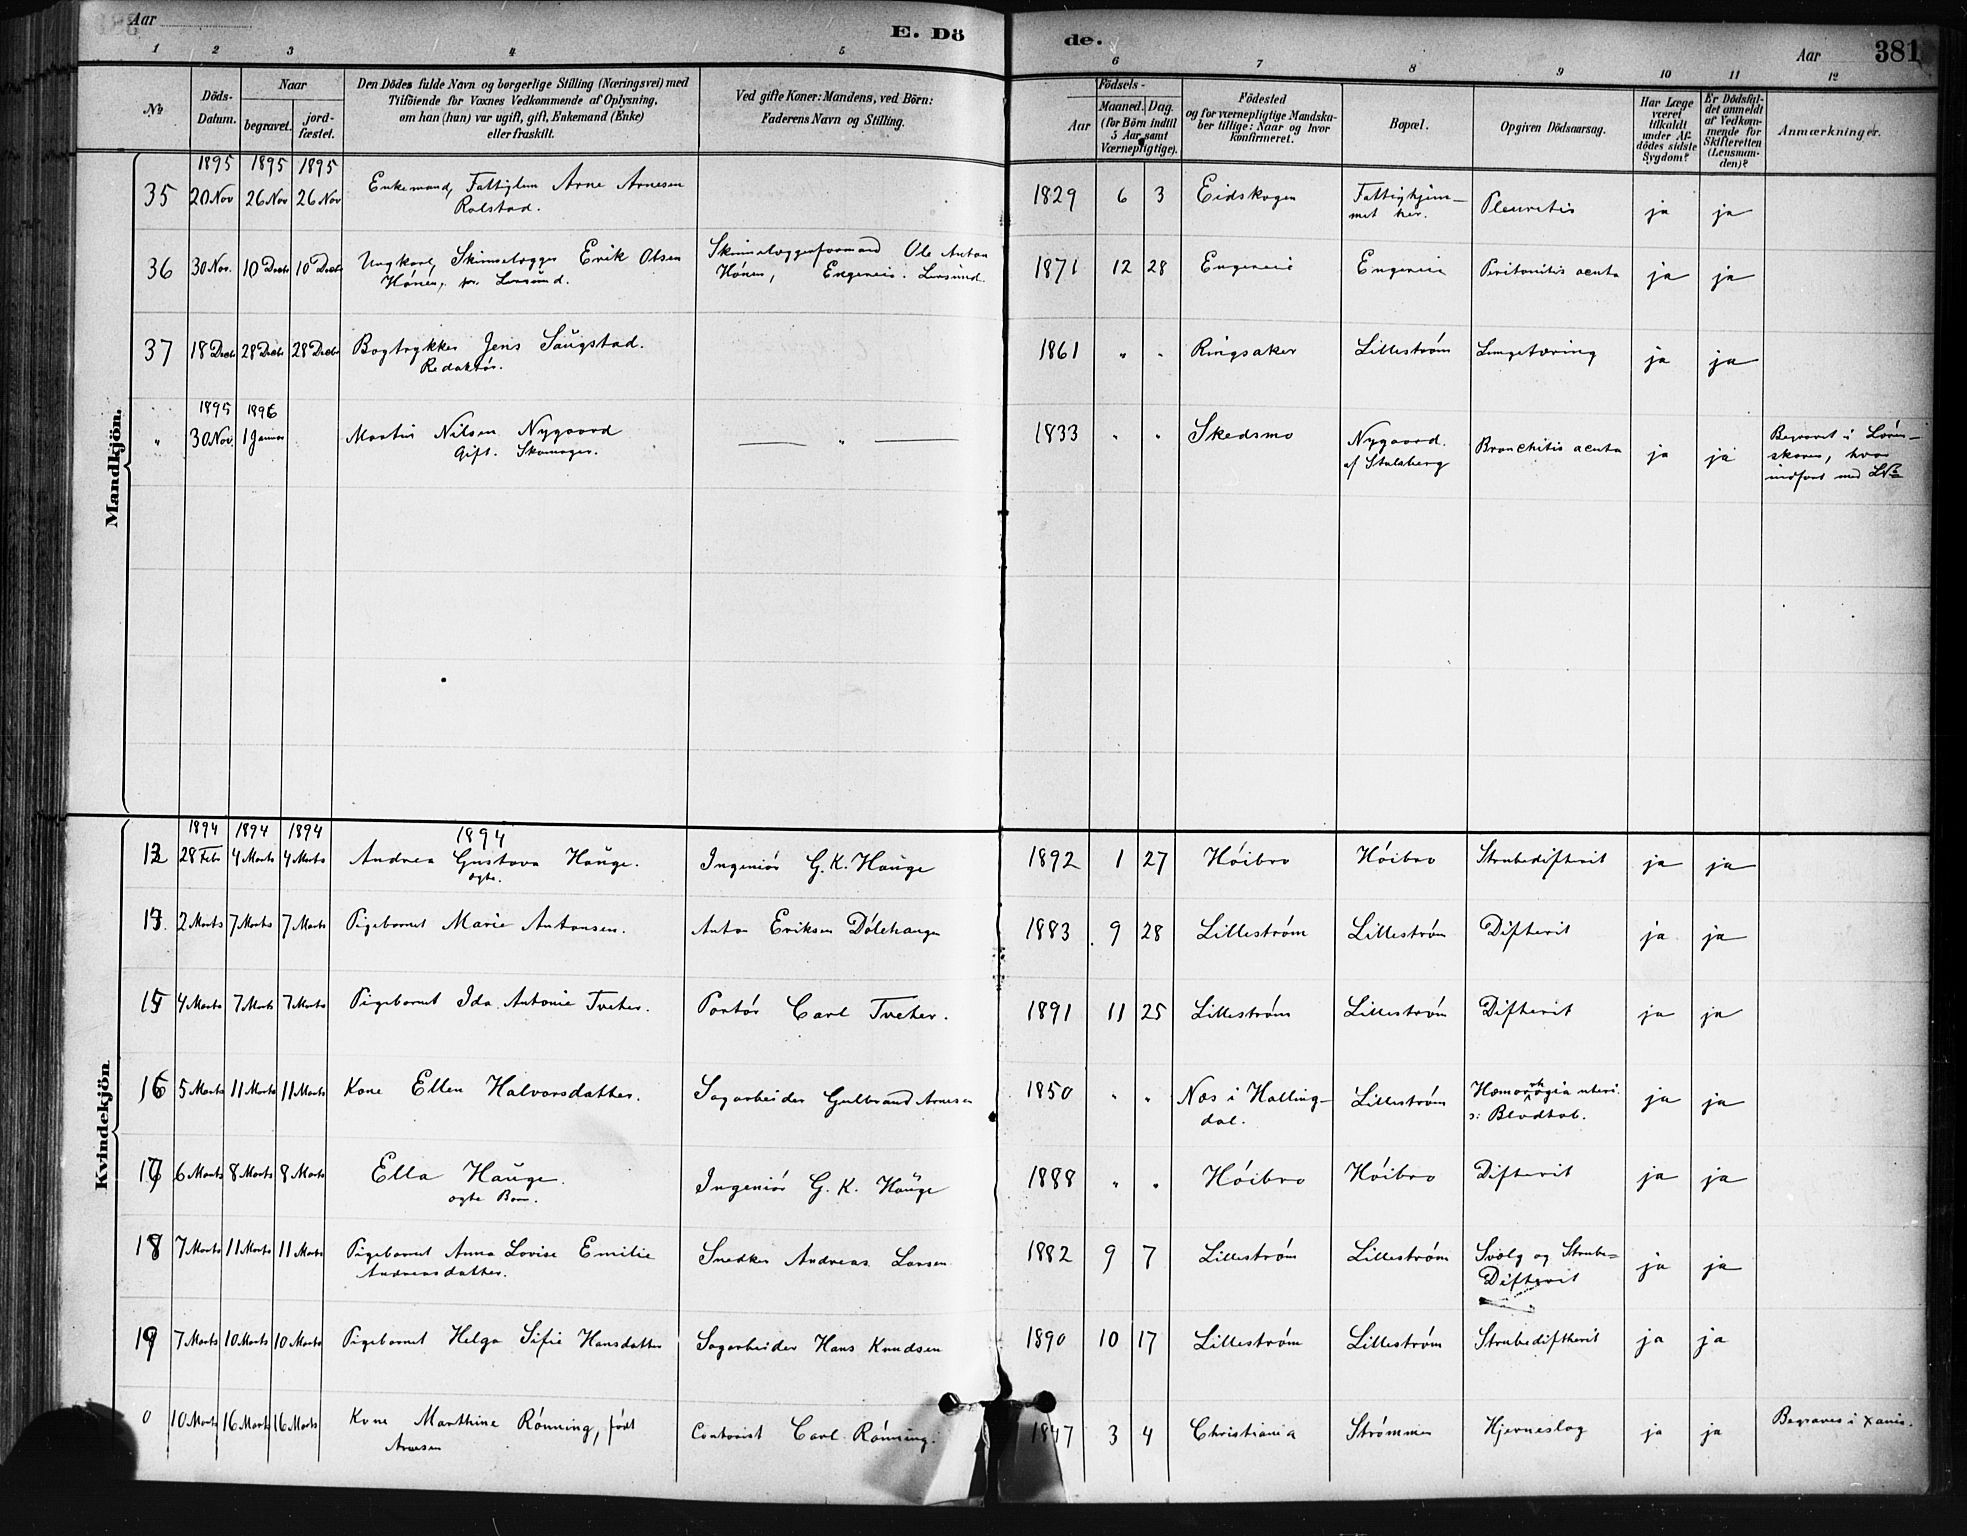 Aar
E. Dö
de.
Aar
381
1 2 3 4 5 6 7 8 9 10 11 12
No
Döds-Datum.
Naar
begravet.
jord-fæstet.
Den Dödes fulde Navn og borgerlige Stilling (Næringsvei) med
Tilföiende for Voxnes Vedkommende af Oplysning,
om han (hun) var ugift, gift, Enkemand (Enke)
eller fraskilt.
Ved gifte Koner: Mandens, ved Börn:
Faderens Navn og Stilling.
Födsels-
Aar
Maaned. Dag.
(for Börn indtil
5 Aar samt
Værnepligtige).
Födested
og for værnepligtige Mandska-
ber tillige: Naar og hvor
konfirmeret.
Bopæl.
Opgiven Dödsaarsag.
Har Læge
været
tilkaldt
under Af-
dödes sidste
Sygdom?
Er Dödsfal-
det anmeldt
af Vedkom-
mende for
Skifteretten
(Lensman-
den)?
Anmærkninger.
Mandkjön.
1895 1895 1895
35 20 Nov 26 Nov 26 Nov Enkemand, Fattiglem Arne Arnesen 1829 6 3 Eidskogen Fattighjem- Pleuritis ja ja
Rolstad. met her.
36 30 Nov. 10 Decbr 10 Decbr Ungkarl, Skinnelægger Erik Olsen Skinnelæggerformand Ole Anton 1871 12 28 Engeneie Engeneie Peritonitis acuta ja ja
Hónen, pr. Lersund. Hónen, Engeneie. Lersund.
37 18 Decbr 28 Decbr 28 Decbr Bogtrykker Jens Saugstad. 1861 " " Ringsaker Lillestrøm Lungetæring ja ja
Redaktør.
1895 1896
" 30 Nov. 1 Januar Martin Nilsen Nygaard " 1833 " " Skedsmo Nygaard. Bronchitis acuta ja ja Begravet i Lørn-
Gift. Skomager. af Stalsberg skoven, hvor
indført med LNo
Kvindekjön
1894 1894 1894 1894
13 28 Febr 4 Marts 4 Marts Andrea Gustava Hauge. Ingeniør G. K. Hauge 1892 1 27 Høibro Høibro Strubedifterit ja ja
ægte.
2 Marts 7 Marts 7 Marts Pigebarnet Marie Antonsen. Anton Eriksen Dølehaugen 1883 9 28 Lillestrøm Lillestrøm Difterit ja ja
15 4 Marts 7 Marts 7 Marts Pigebarnet Ida Antonie Tveter. Portør Carl Tveter. 1891 11 25 Lillestrøm Lillestrøm Difterit ja ja
16 5 Marts 11 Marts 11 Marts Kone Ellen Halvorsdatter. Sagarbeider Gulbrand Arnesen 1850 " " Næs i Halling- Lillestrøm Hæmorrhagia uteri. ja ja
dal. ɔ: Blodtab.
17 6 Marts 8 Marts 8 Marts Ella Hauge. Ingeniør G. K. Hauge 1888 " " Høibro Høibro Difterit ja ja
ægte Barn.
18 7 Marts 11 Marts 11 Marts Pigebarnet Anna Lovise Emilie Snedker Andreas Larsen 1882 9 7 Lillestrøm Lillestrøm Svælg og Strube- ja ja
Andreasdatter. Difterit
19 7 Marts 10 Marts 10 Marts Pigebarnet Helga Sifie Hansdatter Sagarbeider Hans Knudsen 1890 10 17 Lillestrøm Lillestrøm Strubediftherit ja ja
0 10 Marts 16 Marts 16 Marts Kone Marthine Rønning, født Contorist Carl Rønning. 1847 3 4 Christiania Strømmen Hjerneslag ja ja Begraves i Xania.
Arnesen